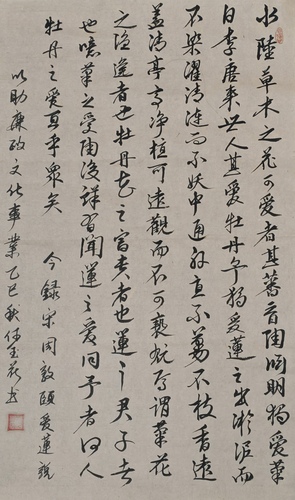 水陸草木之花可愛者甚蕃晋陶渊明獨爱菊
自李唐来世人甚爱牡丹予獨爱蓮之出淤泥而
不染濯清涟而不妖中通外直不蔓不枝香遠
益清亭亭净植可遠觀而不可亵玩焉谓菊花
之隐逸者也牡丹花之富贵者也蓮之君子者
也噫菊之爱陶後鲜有闻蓮之爱同予者何人
牡丹之爱宜乎眾矣 今録宋周敦頤爱蓮説
以助廉政文化事業乙巳秋玉花书